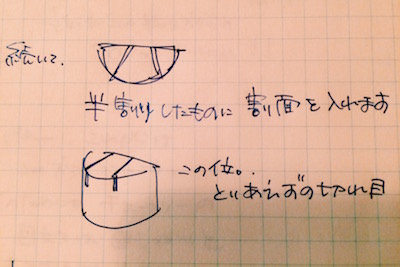 続いて、
半割りしたものに 割り面を入れます
この位。
とりあえずの切れ目